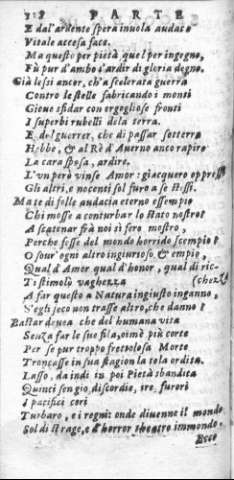 P A R T E
E dal'ardente spera inuola audace
Vitale accesa face.
Ma questo per pietà, quel per ingegno,
Fù pur d'ambo l'ardir di gloria degno.
Già le sì ancor, ch'a scelerata guerra
Contro le stelle fabricando i monti
Gioue sfidar con orgogliose fronti
I superbi rubelli de la terra.
E del guerrer, che di passar sotterra
Hebbe, & al Rè d'Auerno anco rapire
La cara sposa, ardire.
L'vn però vinse Amor: giacquero oppressi
Gli altri, e nocenti sol furo a se stessi.
Ma te di folle audacia eterno essempio
Chi mosse a conturbar lo stato nostro?
A scatenar frà noi sì fero mostro,
Perche fesse del mondo horrido scempio?
O sour'ogni altro ingiurioso, & empio,
Qual d'Amor, qual d'honor, qual di ric-
T'stimolò vaghezza (chezza
A far questo a Natura ingiusto inganno,
S'egli seco non trasse altro, che danno?
Bastar deuea che del humana vita
Senza far le sue fila, oimè più corte
Per se pur troppo frettolosa Morte
Troncasse in sua stagion la tela ordita.
Lasso, da indi in poi Pietà sbandita
Quinci sengio, discordie, ire, furori
I pacifici cori
Turbaro, e i regni: onde diuenne il mondo
Sol di strage, e d'horror theatro immondo.
Ecco